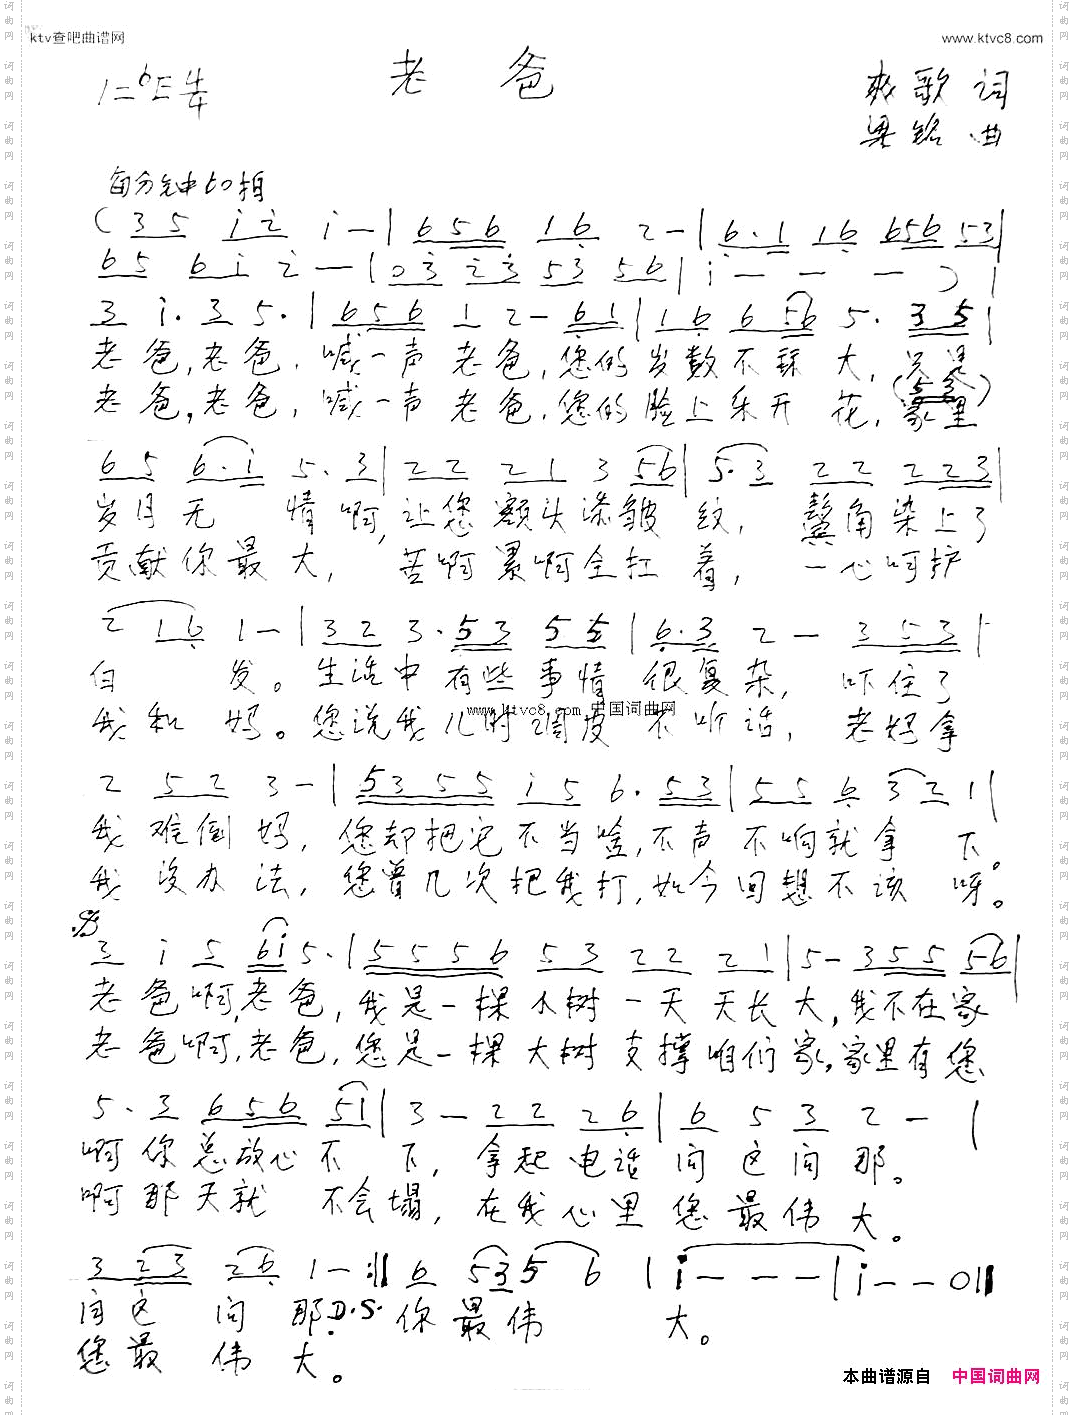 ktv查吧曲谱网
www.ktvc8.com
老 爸
1=♭E 4/4
爽歌 词
梁铭 曲
每分钟60拍
( 3 5 i 2̇ i - | 6 5 6 1 6 2 - | 6 . 1 1 6 6 5 6 5 3 |
6 5 6 i 2̇ - - | 0 3̇ 2̇ 3̇ 5 3 5 6 | i - - - ) |
3 i . 3 5 . | 6 5 6 1 2 - 6 1 | 1 6 6 5 6 5 . 3 5 |
老爸,老爸,喊一声 老爸,您的岁数不算大,只是
(5 3)
老爸,老爸,喊一声 老爸,您的脸上乐开花,家里
6 5 6 . i 5 . 3 | 2 2 2 1 3 5 6 | 5 . 3 2 2 2 2 3 |
岁月无 情啊,让您额头添皱 纹, 鬓角染上了
贡献你最大, 苦啊累啊全扛 着, 一心呵护
2 1 6 1 - | 3 2 3 . 5 3 5 5 | 6 . 3 2 - 3 5 3 |
白 发。生活中有些事情 很复杂, 吓住了
www.ktvc8.com 中国词曲网
我和 妈。您说我儿时调皮 不听话, 老妈拿
2 5 2 3 - | 5 3 5 5 i 5 6 . 5 3 | 5 5 6 3 2 1 |
我 难倒 妈, 您却把它不当啥,不声不响就拿 下。
我 没办 法, 您曾几次把我打,如今回想不该 呀。
3 i 5 6 i 5 . | 5 5 5 6 5 3 2 2 2 1 | 5 - 3 5 5 5 6 |
老爸啊,老爸,我是一棵小树一天天长大,我不在家
老爸啊,老爸,您是一棵大树支撑咱们家,家里有您
5 . 3 6 5 6 5 1 | 3 - 2 2 2 6 | 6 5 3 2 - |
啊你总放心不 下, 拿起电话 问这问那。
啊那天就 不会塌, 在我心里 您最伟大。
3 2 3 2 6 1 - - :‖ 6 5 3 5 6 | i - - - | i - - 0 ‖
问这 问 那 D.S. 你最伟 大。
您最 伟 大。
本曲谱源自 中国词曲网